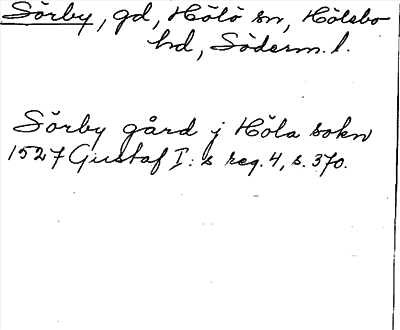 Sörby, gd, Hölö sn, Hölebo
hd, Söderm. l.
Sörby gård j Höla sokn
1527 Gustaf I:s reg. 4, s. 370.